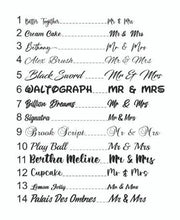 1 Better Together........ Mr & Mrs
2 Cream Cake........ Mr & Mrs
3 Bethany........ Mr & Mrs
4 Alex Brush........ Mr & Mrs
5 Black Sword........ Mr & Mrs
6 WALTOGRAPH........ MR & MRS
7 Gillian Dreams........ Mr & Mrs
8 Signatra........ Mr & Mrs
9 Brook Script........ Mr & Mrs
10 Play Ball........ Mr & Mrs
11 Bertha Meline........ Mr & Mrs
12 Cupcake........ Mr & Mrs
13 Lemon Jelly........ Mr & Mrs
14 Palais Des Ombres........ Mr & Mrs